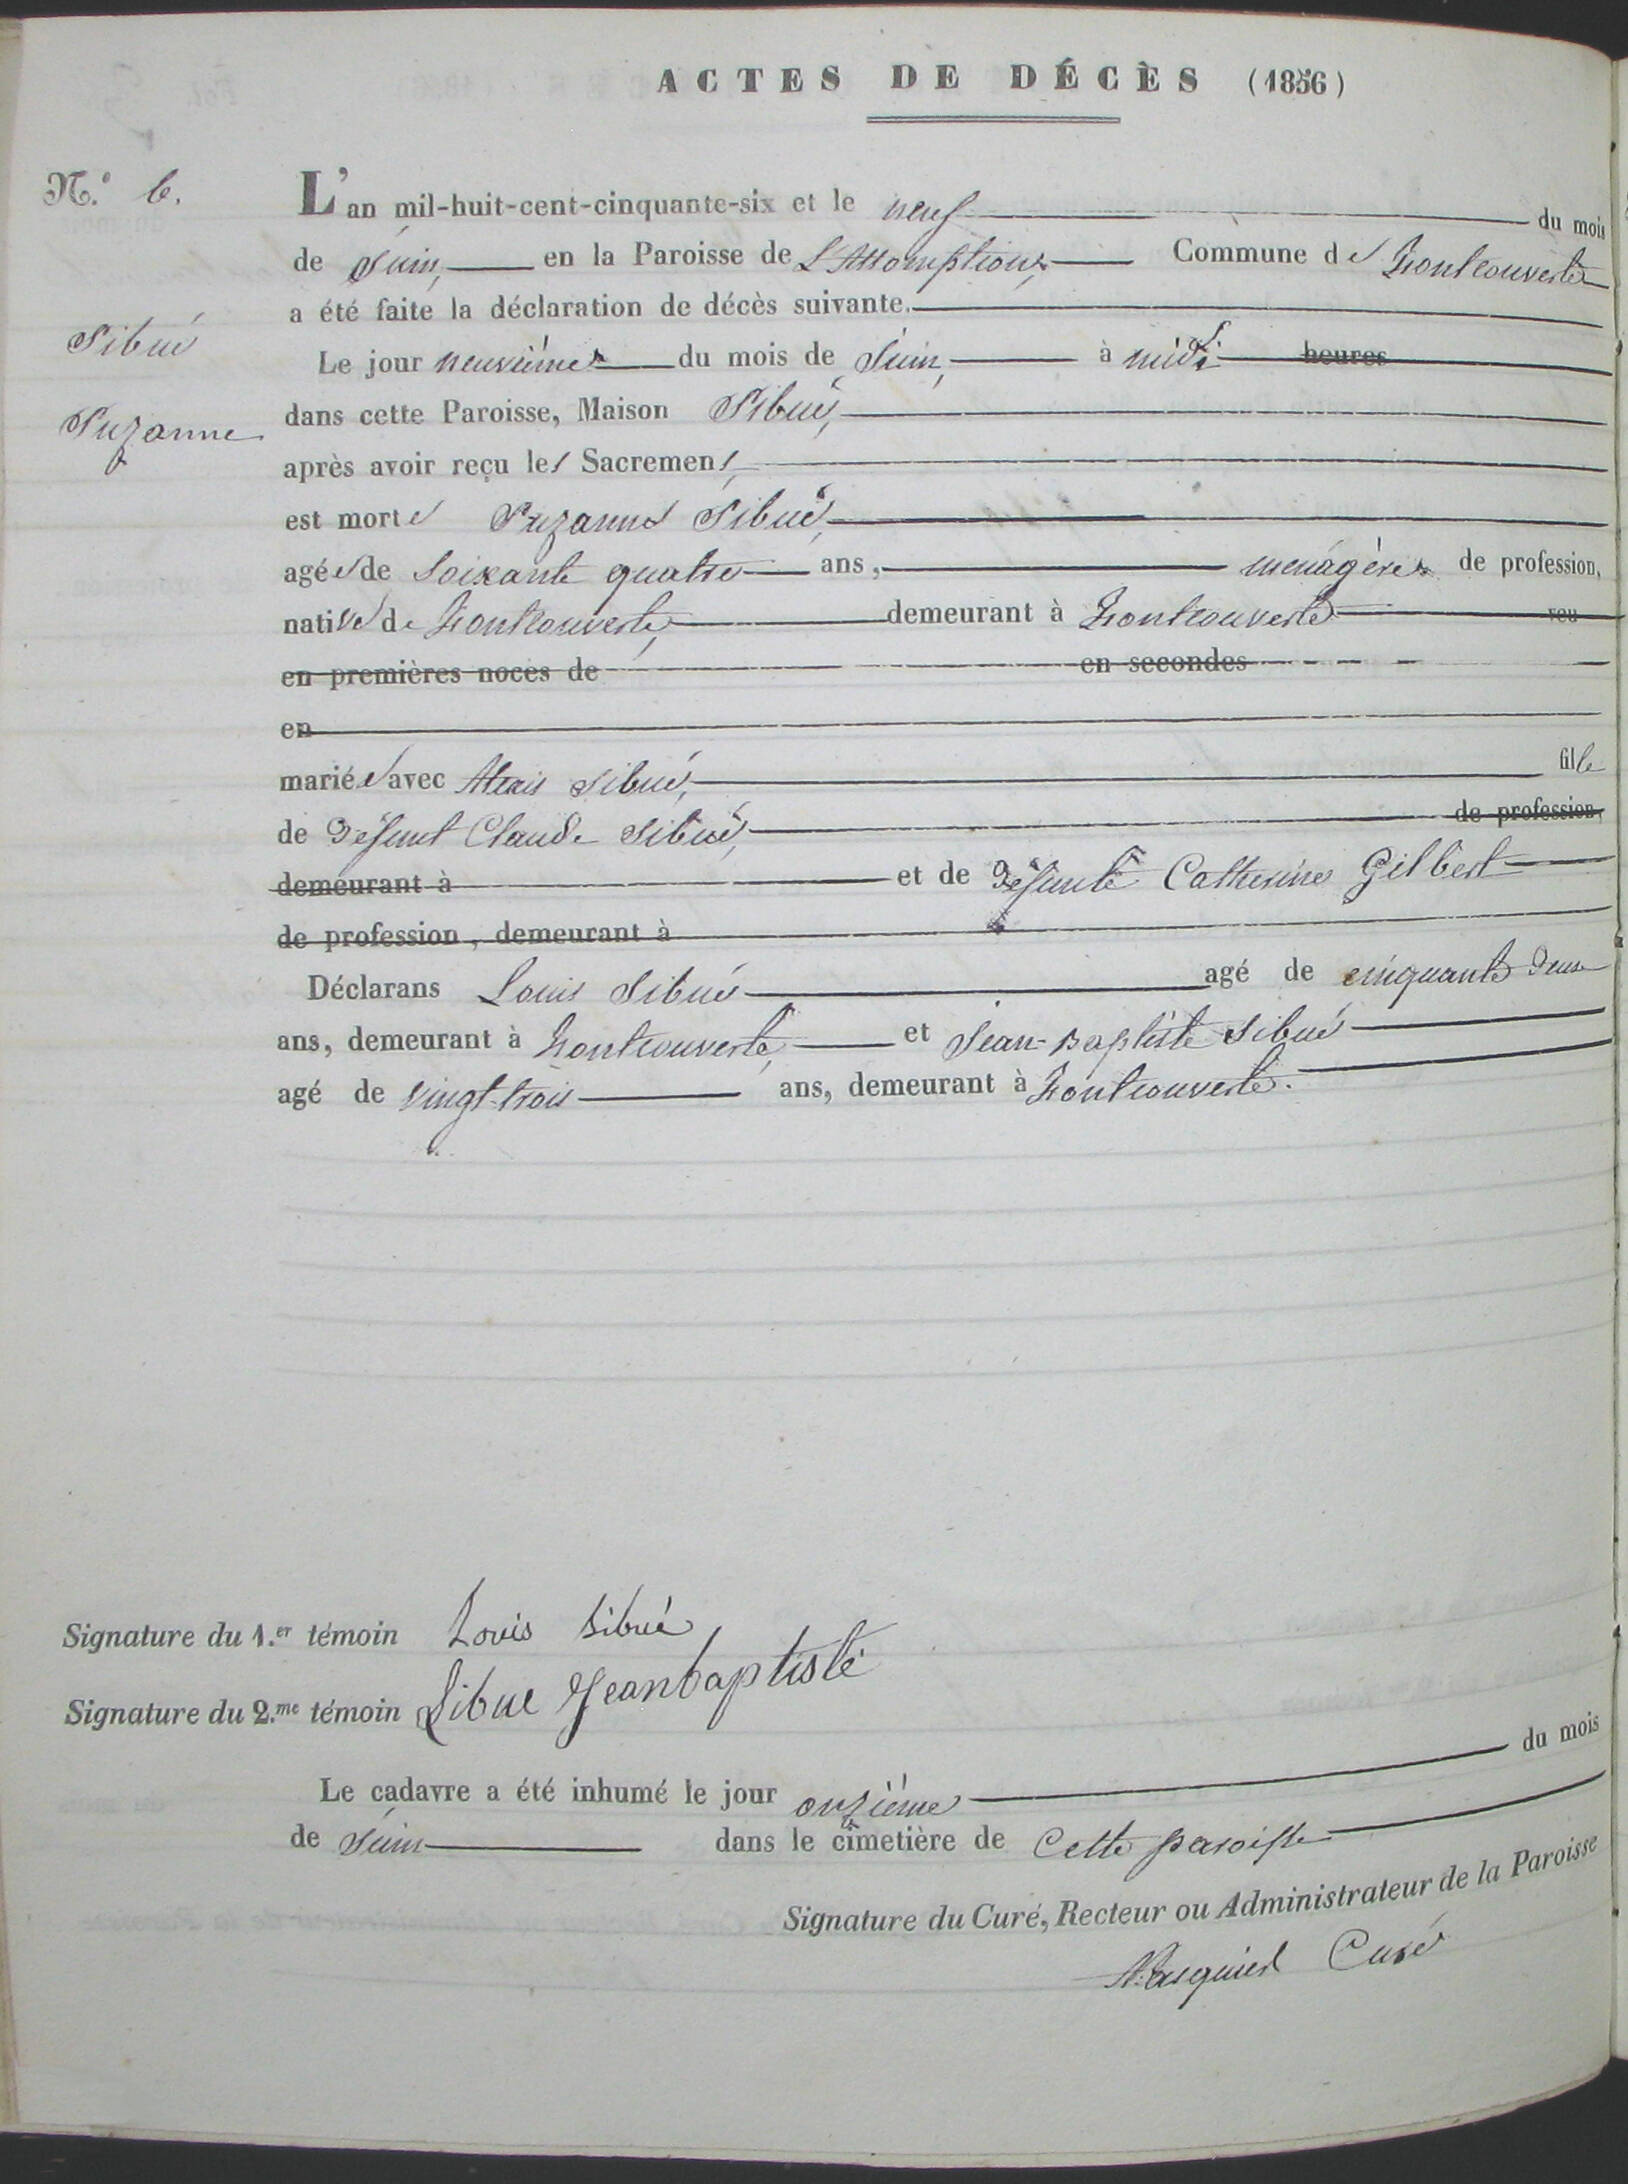 ACTES DE DÉCÈS (1856)
N.º 6.
L'an mil-huit-cent-cinquante-six et le neuf du mois
de Juin, en la Paroisse de L'Assomption, Commune de Fontcouverte
a été faite la déclaration de décès suivante.
Sibué
Le jour neuvième du mois de Juin, à midi heures
Suzanne
dans cette Paroisse, Maison Sibué,
après avoir reçu les Sacremens,
est morte Suzanne Sibué,
agée de soixante quatre ans, menágère de profession,
native de Fontcouverte, demeurant à Fontcouverte veu
en premières noces de en secondes
en
mariée avec Alexis Sibué, fille
de défunt Claude Sibué, de profession,
demeurant à et de défunte Catherine Gilbert
de profession, demeurant à
Déclarans Louis Sibué agé de cinquante deux
ans, demeurant à Fontcouverte, et Jean-Baptiste Sibué
agé de vingt-trois ans, demeurant à Fontcouverte.
Signature du 1.er témoin Louis Sibué
Signature du 2.me témoin Sibue Jeanbaptiste
Le cadavre a été inhumé le jour onzième du mois
de Juin dans le cimetière de cette paroisse
Signature du Curé, Recteur ou Administrateur de la Paroisse
Curé